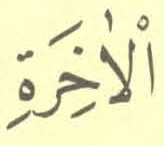 الْاٰخِرَةِ